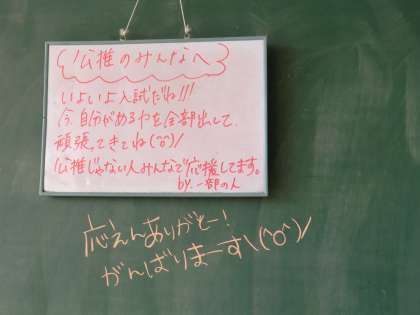 公推のみんなへ
いよいよ入試だね!!!
今、自分がめるやを全部出して、
頑張ってきてね(^o^)/
公推じゃない人みんなで応援してます。
by.一部の人
応えんありがとー!
がんばりまーす\(^o^)/